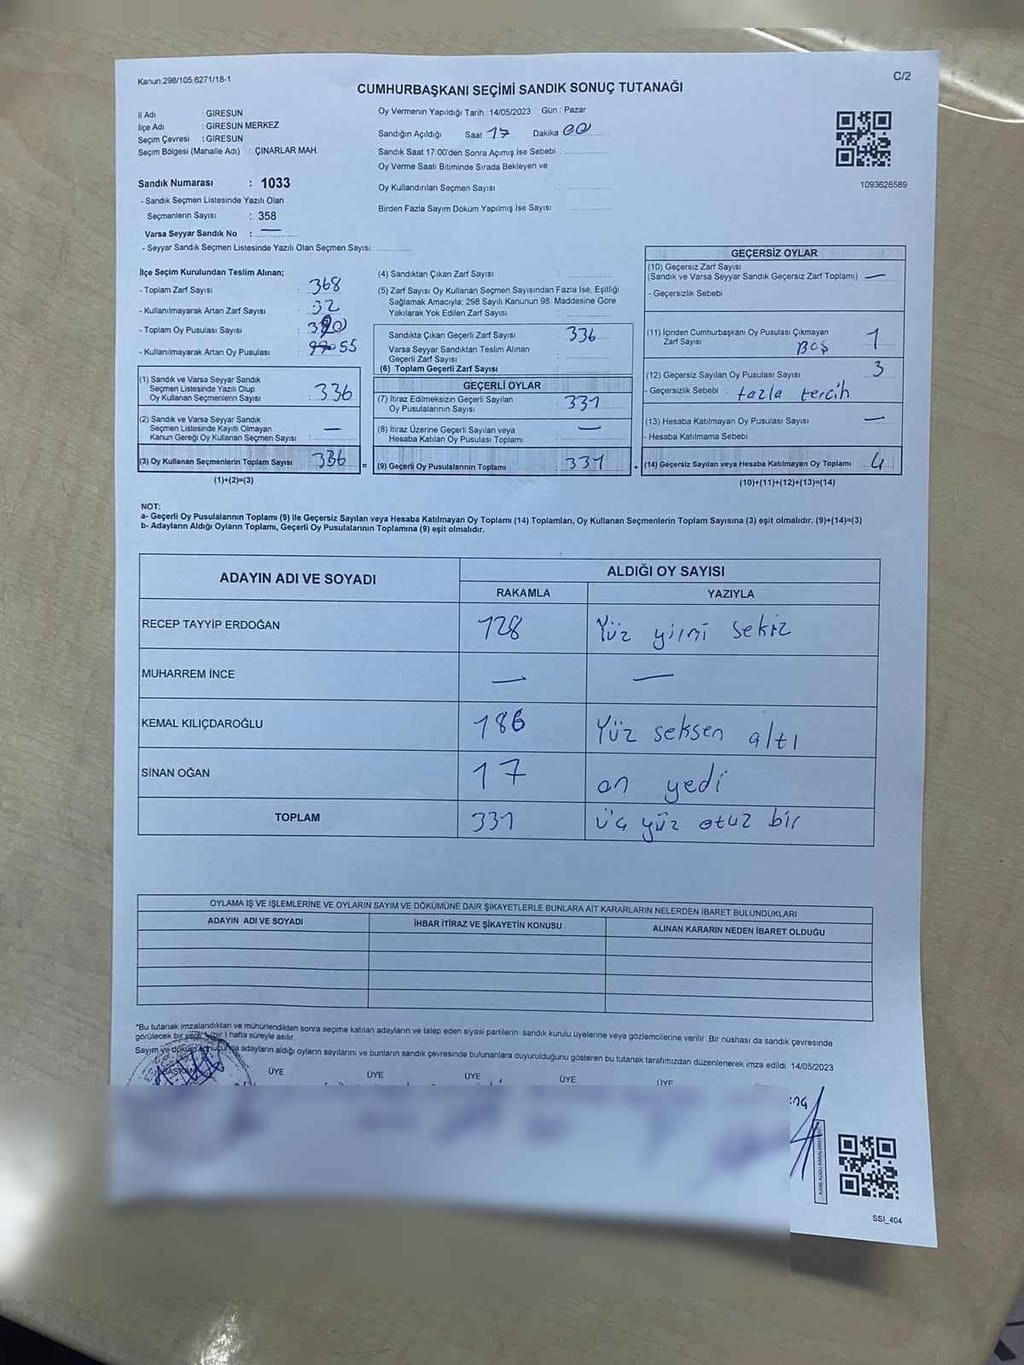 Kanun.298/105.6271/18-1
C/2
CUMHURBAŞKANI SEÇİMİ SANDIK SONUÇ TUTANAĞI
İl Adı : GİRESUN
İlçe Adı : GİRESUN MERKEZ
Seçim Çevresi : GİRESUN
Seçim Bölgesi (Mahalle Adı) : ÇINARLAR MAH.
Sandık Numarası : 1033
- Sandık Seçmen Listesinde Yazılı Olan
Seçmenlerin Sayısı : 358
Varsa Seyyar Sandık No : —
- Seyyar Sandık Seçmen Listesinde Yazılı Olan Seçmen Sayısı:
Oy Vermenin Yapıldığı Tarih : 14/05/2023 Gün : Pazar
Sandığın Açıldığı Saat 17 Dakika 00
Sandık Saat 17:00'den Sonra Açımış İse Sebebi :
Oy Verme Saati Bitiminde Sırada Bekleyen ve
Oy Kullandırılan Seçmen Sayısı
Birden Fazla Sayım Döküm Yapılmış İse Sayısı
1093626589
İlçe Seçim Kurulundan Teslim Alınan;
- Toplam Zarf Sayısı : 368
- Kullanılmayarak Artan Zarf Sayısı : 32
- Toplam Oy Pusulası Sayısı :
- Kullanılmayarak Artan Oy Pusulası : 55
(1) Sandık ve Varsa Seyyar Sandık
Seçmen Listesinde Yazılı Olup
Oy Kullanan Seçmenlerin Sayısı : 336
(2) Sandık ve Varsa Seyyar Sandık
Seçmen Listesinde Kayıtlı Olmayan
Kanun Gereği Oy Kullanan Seçmen Sayısı : —
(3) Oy Kullanan Seçmenlerin Toplam Sayısı : 336 =
(1)+(2)=(3)
(4) Sandıktan Çıkan Zarf Sayısı :
(5) Zarf Sayısı Oy Kullanan Seçmen Sayısından Fazla İse, Eşitliği
Sağlamak Amacıyla; 298 Sayılı Kanunun 98. Maddesine Göre
Yakılarak Yok Edilen Zarf Sayısı :
Sandıkta Çıkan Geçerli Zarf Sayısı : 336
Varsa Seyyar Sandıktan Teslim Alınan
Geçerli Zarf Sayısı :
(6) Toplam Geçerli Zarf Sayısı :
GEÇERLİ OYLAR
(7) İtiraz Edilmeksizin Geçerli Sayılan
Oy Pusulalarının Sayısı : 331
(8) İtiraz Üzerine Geçerli Sayılan veya
Hesaba Katılan Oy Pusulası Toplamı : —
(9) Geçerli Oy Pusulalarının Toplamı : 331 +
GEÇERSİZ OYLAR
(10) Geçersiz Zarf Sayısı
(Sandık ve Varsa Seyyar Sandık Geçersiz Zarf Toplamı) : —
- Geçersizlik Sebebi :
(11) İçinden Cumhurbaşkanı Oy Pusulası Çıkmayan
Zarf Sayısı : 1
Boş
(12) Geçersiz Sayılan Oy Pusulası Sayısı : 3
- Geçersizlik Sebebi : fazla tercih
(13) Hesaba Katılmayan Oy Pusulası Sayısı : —
- Hesaba Katılmama Sebebi :
(14) Geçersiz Sayılan veya Hesaba Katılmayan Oy Toplamı : 4
(10)+(11)+(12)+(13)=(14)
NOT:
a- Geçerli Oy Pusulalarının Toplamı (9) ile Geçersiz Sayılan veya Hesaba Katılmayan Oy Toplamı (14) Toplamları, Oy Kullanan Seçmenlerin Toplam Sayısına (3) eşit olmalıdır. (9)+(14)=(3)
b- Adayların Aldığı Oyların Toplamı, Geçerli Oy Pusulalarının Toplamına (9) eşit olmalıdır.
ADAYIN ADI VE SOYADI
ALDIĞI OY SAYISI
RAKAMLA YAZIYLA
RECEP TAYYİP ERDOĞAN 128 Yüz yirmi sekiz
MUHARREM İNCE — —
KEMAL KILIÇDAROĞLU 186 Yüz seksen altı
SİNAN OĞAN 17 on yedi
TOPLAM 331 üç yüz otuz bir
OYLAMA İŞ VE İŞLEMLERİNE VE OYLARIN SAYIM VE DÖKÜMÜNE DAİR ŞİKAYETLERLE BUNLARA AİT KARARLARIN NELERDEN İBARET BULUNDUKLARI
ADAYIN ADI VE SOYADI İHBAR İTİRAZ VE ŞİKAYETİN KONUSU ALINAN KARARIN NEDEN İBARET OLDUĞU
*Bu tutanak imzalandıktan ve mühürlendikten sonra seçime katılan adayların ve talep eden siyasi partilerin sandık kurulu üyelerine veya gözlemcilerine verilir. Bir nüshası da sandık çevresinde
görülecek bir yere, 1 (bir) hafta süreyle asılır.
Sayım ve döküm sonucunda adayların aldığı oyların sayılarını ve bunların sandık çevresinde bulunanlara duyurulduğunu gösteren bu tutanak tarafımızdan düzenlenerek imza edildi. 14/05/2023
BAŞKAN ÜYE ÜYE ÜYE ÜYE ÜYE
SSI_404